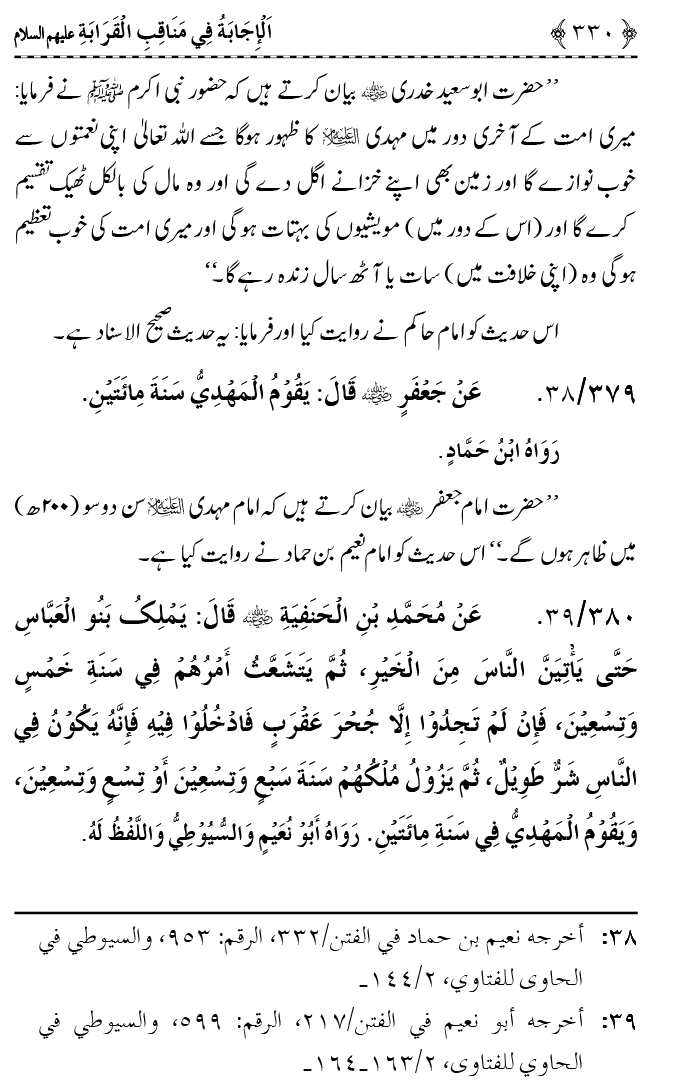 ﴿٣٣٠﴾ اَلْإِجَابَةُ فِي مَنَاقِبِ الْقَرَابَةِ علیہم السلام
’’حضرت ابو سعید خدری رضی اللہ عنہ بیان کرتے ہیں کہ حضور نبی اکرم ﷺ نے فرمایا:
میری امت کے آخری دور میں مہدی علیہ السلام کا ظہور ہوگا جسے اللہ تعالیٰ اپنی نعمتوں سے
خوب نوازے گا اور زمین بھی اپنے خزانے اگل دے گی اور وہ مال کی بالکل ٹھیک تقسیم
کرے گا اور (اس کے دور میں) مویشیوں کی بہتات ہوگی اور میری امت کی خوب تعظیم
ہوگی وہ (اپنی خلافت میں) سات یا آٹھ سال زندہ رہے گا۔‘‘
اس حدیث کو امام حاکم نے روایت کیا اور فرمایا: یہ حدیث صحیح الاسناد ہے۔
٣٨/٣٧٩. عَنْ جَعْفَرٍ رضی اللہ عنہ قَالَ: يَقُوْمُ الْمَهْدِيُّ سَنَةَ مِائَتَيْنِ.
رَوَاهُ ابْنُ حَمَّادٍ.
’’حضرت امام جعفر رضی اللہ عنہ بیان کرتے ہیں کہ امام مہدی علیہ السلام سن دو سو (۲۰۰ھ)
میں ظاہر ہوں گے۔‘‘ اس حدیث کو امام نعیم بن حماد نے روایت کیا ہے۔
٣٩/٣٨٠. عَنْ مُحَمَّدِ بْنِ الْحَنَفِيَةِ رضی اللہ عنہ قَالَ: يَمْلِكُ بَنُو الْعَبَّاسِ
حَتَّى يَأْتِيَنَّ النَّاسَ مِنَ الْخَيْرِ، ثُمَّ يَتَشَعَّثُ أَمْرُهُمْ فِي سَنَةِ خَمْسٍ
وَتِسْعِيْنَ، فَإِنْ لَمْ تَجِدُوْا إِلَّا جُحْرَ عَقْرَبٍ فَادْخُلُوْا فِيْهِ فَإِنَّهُ يَكُوْنُ فِي
النَّاسِ شَرٌّ طَوِيْلٌ، ثُمَّ يَزُوْلُ مُلْكُهُمْ سَنَةَ سَبْعٍ وَتِسْعِيْنَ أَوْ تِسْعٍ وَتِسْعِيْنَ،
وَيَقُوْمُ الْمَهْدِيُّ فِي سَنَةِ مِائَتَيْنِ. رَوَاهُ أَبُوْ نُعَيْمٍ وَالسُّيُوْطِيُّ وَاللَّفْظُ لَهُ.
٣٨: أخرجه نعيم بن حماد في الفتن/٣٣٢، الرقم: ٩٥٣، والسيوطي في
الحاوى للفتاوي، ١٤٤/٢ـ
٣٩: أخرجه أبو نعيم في الفتن/٢١٧، الرقم: ٥٩٩، والسيوطي في
الحاوي للفتاوى، ١٦٣/٢ـ١٦٤ـ